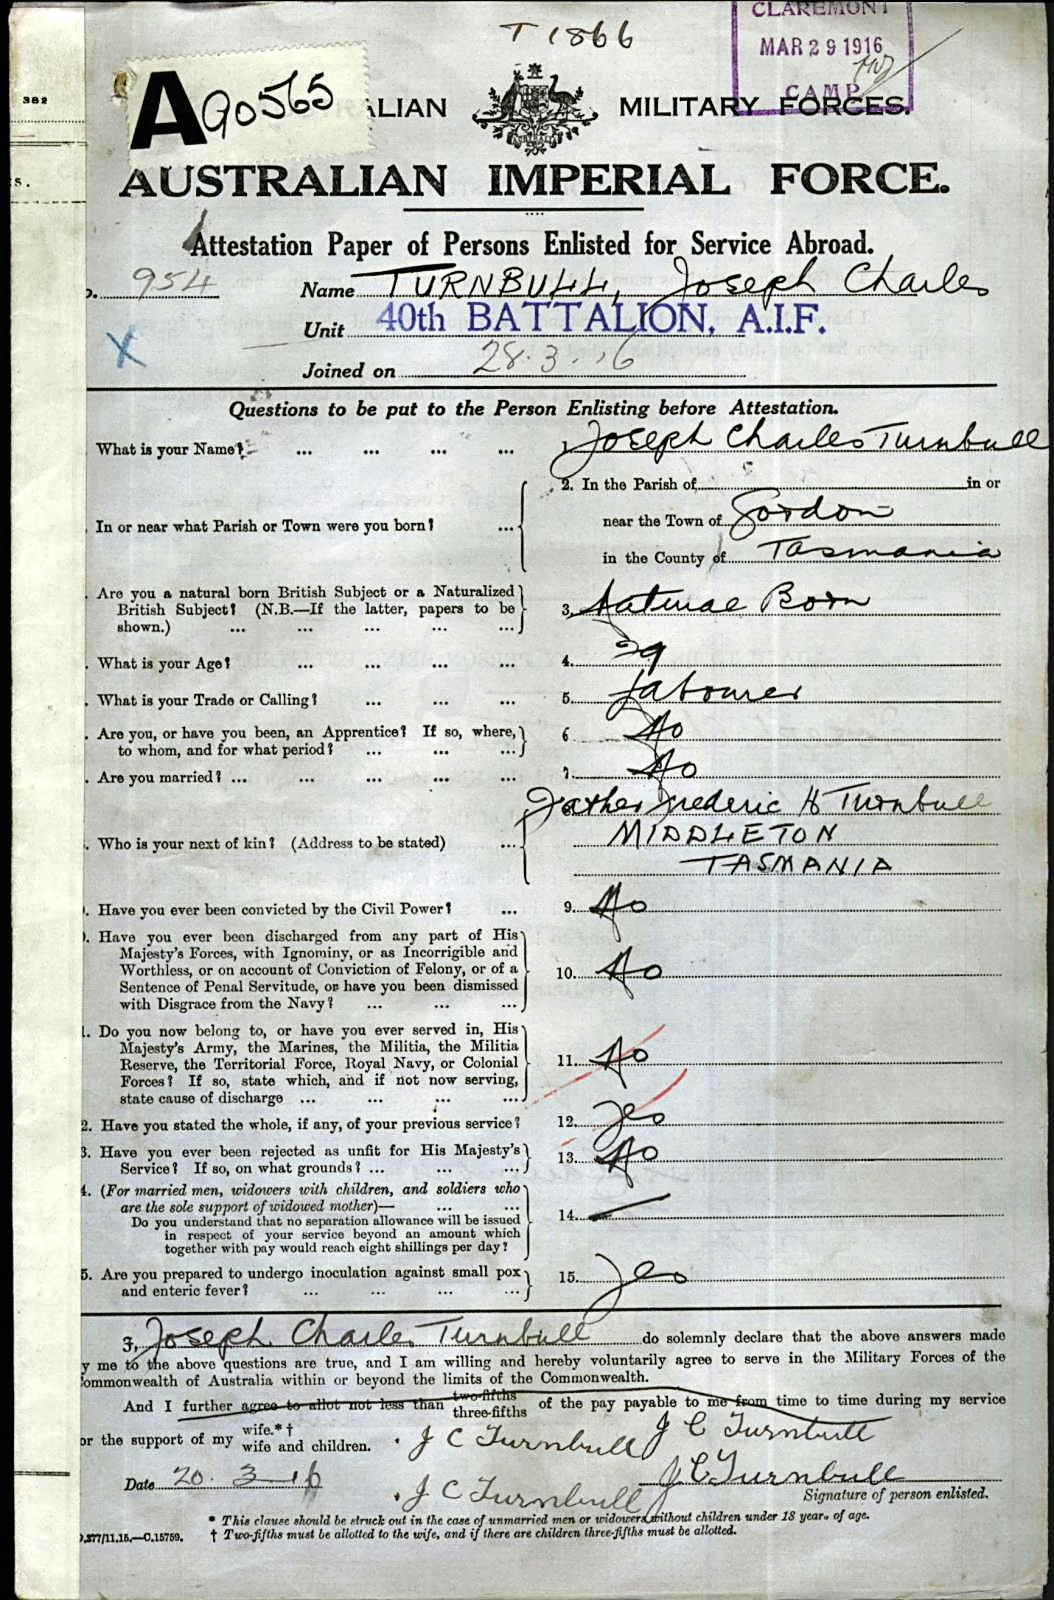 T 1866
CLAREMONT
MAR 29 1916
CAMP
382
A 90565
ALIAN MILITARY FORCES.
AUSTRALIAN IMPERIAL FORCE.
Attestation Paper of Persons Enlisted for Service Abroad.
o. 954 Name TURNBULL, Joseph Charles
Unit 40th BATTALION, A.I.F.
X
Joined on 28.3.16
Questions to be put to the Person Enlisting before Attestation.
What is your Name? ... ... ... ... Joseph Charles Turnbull
2. In the Parish of in or
In or near what Parish or Town were you born? ... near the Town of Gordon
in the County of Tasmania
. Are you a natural born British Subject or a Naturalized
British Subject? (N.B.—If the latter, papers to be 3. Natural Born
shown.) ... ... ... ... ...
. What is your Age? ... ... ... ... 4. 29
. What is your Trade or Calling? ... ... ... 5. Labourer
. Are you, or have you been, an Apprentice? If so, where, 6 No
to whom, and for what period? ... ... ...
. Are you married? ... ... ... ... ... 7. No
Father Frederic H Turnbull
. Who is your next of kin? (Address to be stated) ... MIDDLETON
TASMANIA
. Have you ever been convicted by the Civil Power? ... 9. No
. Have you ever been discharged from any part of His
Majesty's Forces, with Ignominy, or as Incorrigible and
Worthless, or on account of Conviction of Felony, or of a 10. No
Sentence of Penal Servitude, or have you been dismissed
with Disgrace from the Navy? ... ... ...
1. Do you now belong to, or have you ever served in, His
Majesty's Army, the Marines, the Militia, the Militia
Reserve, the Territorial Force, Royal Navy, or Colonial 11. No
Forces? If so, state which, and if not now serving,
state cause of discharge ... ... ... ...
2. Have you stated the whole, if any, of your previous service? 12. Yes
3. Have you ever been rejected as unfit for His Majesty's 13. No
Service? If so, on what grounds? ... ... ...
4. (For married men, widowers with children, and soldiers who
are the sole support of widowed mother)— ... ...
Do you understand that no separation allowance will be issued 14.
in respect of your service beyond an amount which
together with pay would reach eight shillings per day?
5. Are you prepared to undergo inoculation against small pox 15. Yes
and enteric fever? ... ... ... ...
I, Joseph Charles Turnbull do solemnly declare that the above answers made
y me to the above questions are true, and I am willing and hereby voluntarily agree to serve in the Military Forces of the
ommonwealth of Australia within or beyond the limits of the Commonwealth.
And I further agree to allot not less than two-fifths three-fifths of the pay payable to me from time to time during my service
or the support of my wife.*† wife and children. J C Turnbull J C Turnbull
Date 20.3.16 J C Turnbull
J C Turnbull Signature of person enlisted.
* This clause should be struck out in the case of unmarried men or widowers without children under 18 years of age.
.377/11.15.—C.15759. † Two-fifths must be allotted to the wife, and if there are children three-fifths must be allotted.